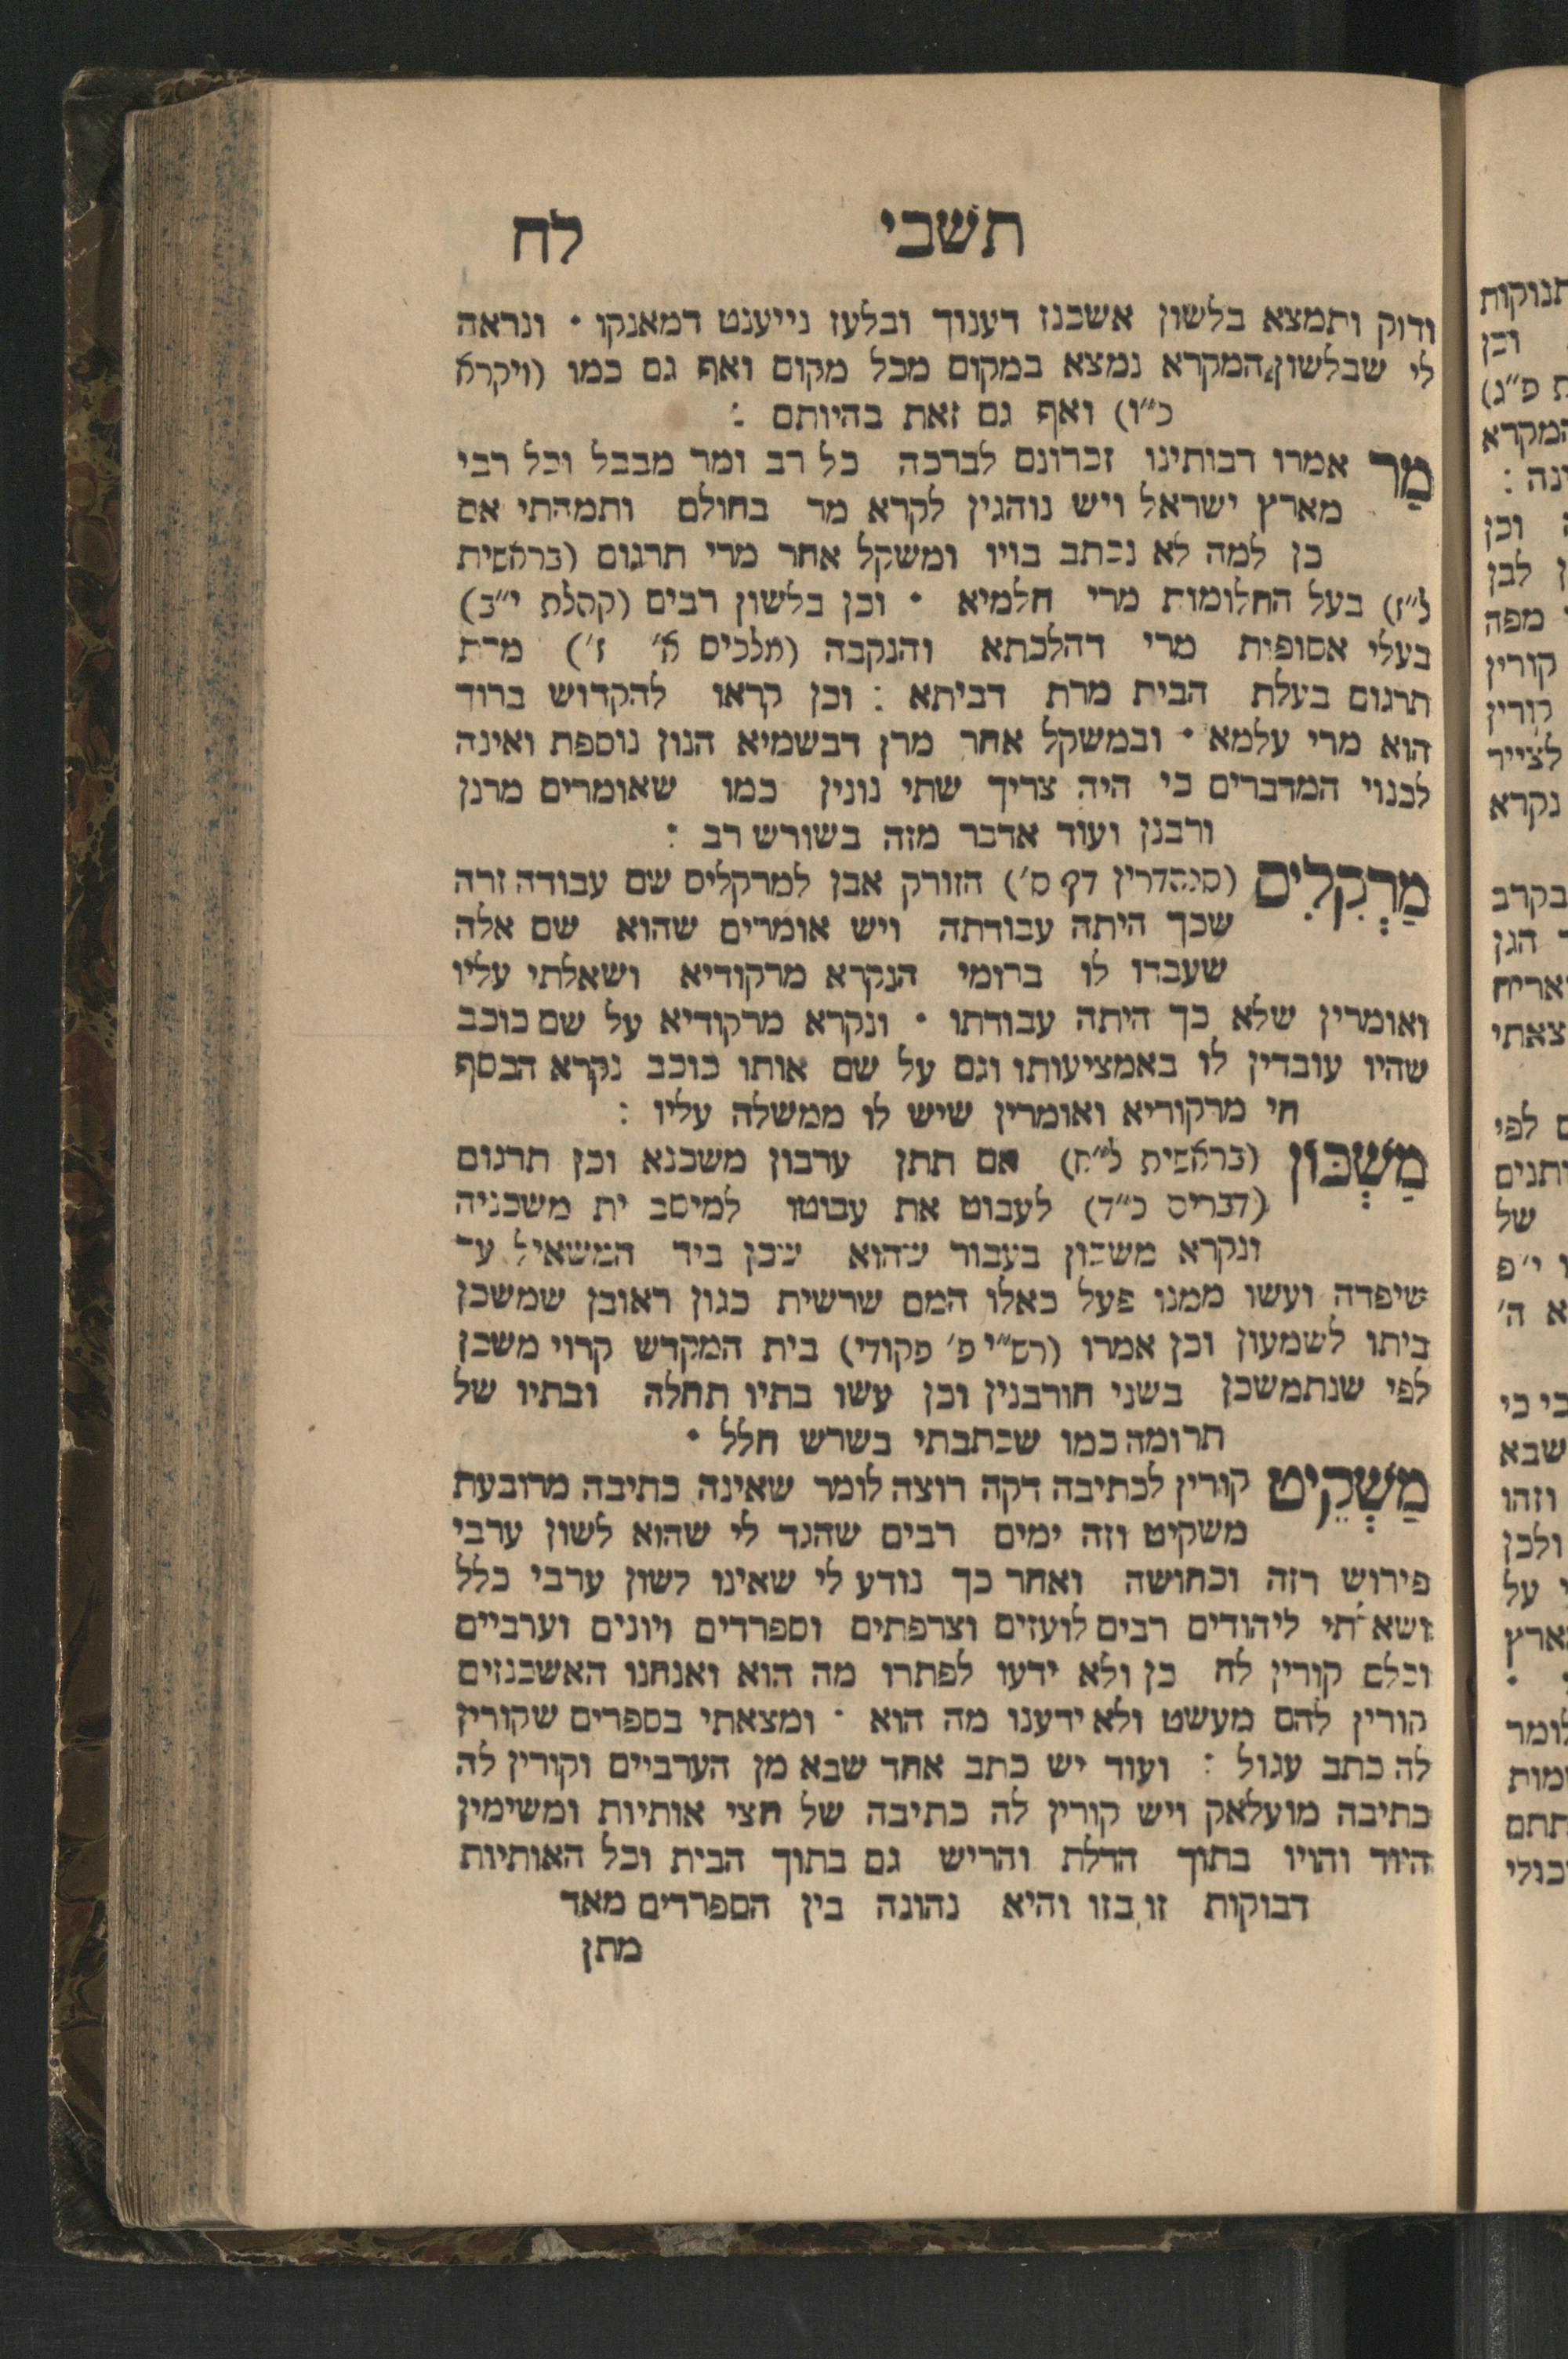 תשבי לח
ודוק ותמצא בלשון אשכנז דענוך ובלעז נייענט דמאנקו • ונראה
לי שבלשון המקרא נמצא במקום מכל מקום ואף גם כמו (ויקרא
כ״ו) ואף גם זאת בהיותם :
מַר אמרו רבותינו זכרונם לברכה כל רב ומר מבבל וכל רבי
מארץ ישראל ויש נוהגין לקרא מר בחולם ותמהתי אם
כן למה לא נכתב בויו ומשקל אחר מרי תרגום (בראשית
ל״ז) בעל החלומות מרי חלמיא • וכן בלשון רבים (קהלת י״ב)
בעלי אסופות מרי דהלכתא והנקבה (מלכים א׳ ז׳) מרת
תרגום בעלת הבית מרת דביתא : וכן קראו להקדוש ברוך
הוא מרי עלמא • ובמשקל אחר מרן דבשמיא הנון נוספת ואינה
לכנוי המדברים כי היה צריך שתי נונין כמו שאומרים מרנן
ורבנן ועוד אדבר מזה בשורש רב :
מַרְקְלִים (סנהדרין דף ס׳) הזורק אבן למרקלים שם עבודה זרה
שכך היתה עבודתה ויש אומרים שהוא שם אלה
שעבדו לו ברומי הנקרא מרקודיא ושאלתי עליו
ואומרין שלא כך היתה עבודתו • ונקרא מרקודיא על שם כוכב
שהיו עובדין לו באמציעותו וגם על שם אותו כוכב נקרא הכסף
חי מרקוריא ואומרין שיש לו ממשלה עליו :
מַשְׁכּוֹן (בראשית ל״ח) אם תתן ערבון משכנא וכן תרגום
(דברים כ״ד) לעבוט את עבוטו למיסב ית משכניה
ונקרא משכון בעבור שהוא שכן ביד המשאיל עד
שיפדה ועשו ממנו פעל כאלו המם שרשית כגון ראובן שמשכן
ביתו לשמעון וכן אמרו (רש״י פ׳ פקודי) בית המקדש קרוי משכן
לפי שנתמשכן בשני חורבנין וכן עשו בתיו תחלה ובתיו של
תרומה כמו שכתבתי בשרש חלל •
מַשְׁקֵיט קורין לכתיבה דקה רוצה לומר שאינה כתיבה מרובעת
משקיט וזה ימים רבים שהגד לי שהוא לשון ערבי
פירוש רזה וכחושה ואחר כך נודע לי שאינו לשון ערבי כלל
ושאלתי ליהודים רבים לועזים וצרפתים וספרדים ויונים וערביים
וכלם קורין לה כן ולא ידעו לפתרו מה הוא ואנחנו האשכנזים
קורין להם מעשט ולא ידענו מה הוא • ומצאתי בספרים שקורין
לה כתב עגול : ועוד יש כתב אחד שבא מן הערביים וקורין לה
כתיבה מועלאק ויש קורין לה כתיבה של חצי אותיות ומשימין
היוד והויו בתוך הדלת והריש גם בתוך הבית וכל האותיות
דבוקות זו בזו והיא נהוגה בין הספרדים מאד
מתן